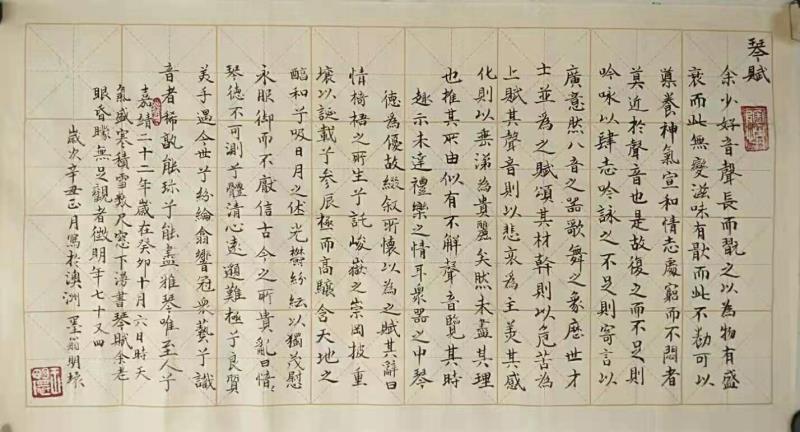 琴賦
余少好音聲長而翫之以為物有盛
衰而此無變滋味有猒而此不勌可以
導養神氣宣和情志處窮而不悶者
莫近於聲音也是故復之而不足則
吟咏以肆志吟詠之不足則寄言以
廣意然八音之器歌舞之象歷世才
士並為之賦頌其材幹則以危苦為
上賦其聲音則以悲哀為主美其感
化則以垂涕為貴麗矣然未盡其理
也推其所由似有不解聲音覽其時
趣示未達禮樂之情耳眾器之中琴
德為優故綴敘所懷以為之賦其辭曰
情椅梧之所生兮託峻嶽之崇岡披重
壤以誕載兮參辰極而高驤含天地之
醕和兮吸日月之休光欝紛紜以獨茂慰
永服御而不厭信古今之所貴亂曰愔〻
琴德不可測兮體清心遠邈難極兮良質
美手遇今世兮紛綸翕響冠眾藝兮識
音者稀孰能珍兮能盡雅琴唯至人兮
嘉靖二十二年歲在癸卯十月六日時天
氣盛寒積雪數尺窓下漫書琴賦余老
眼昏矇無足觀者徵明年七十又四
歲次辛丑正月寫於澳洲 墨翁明